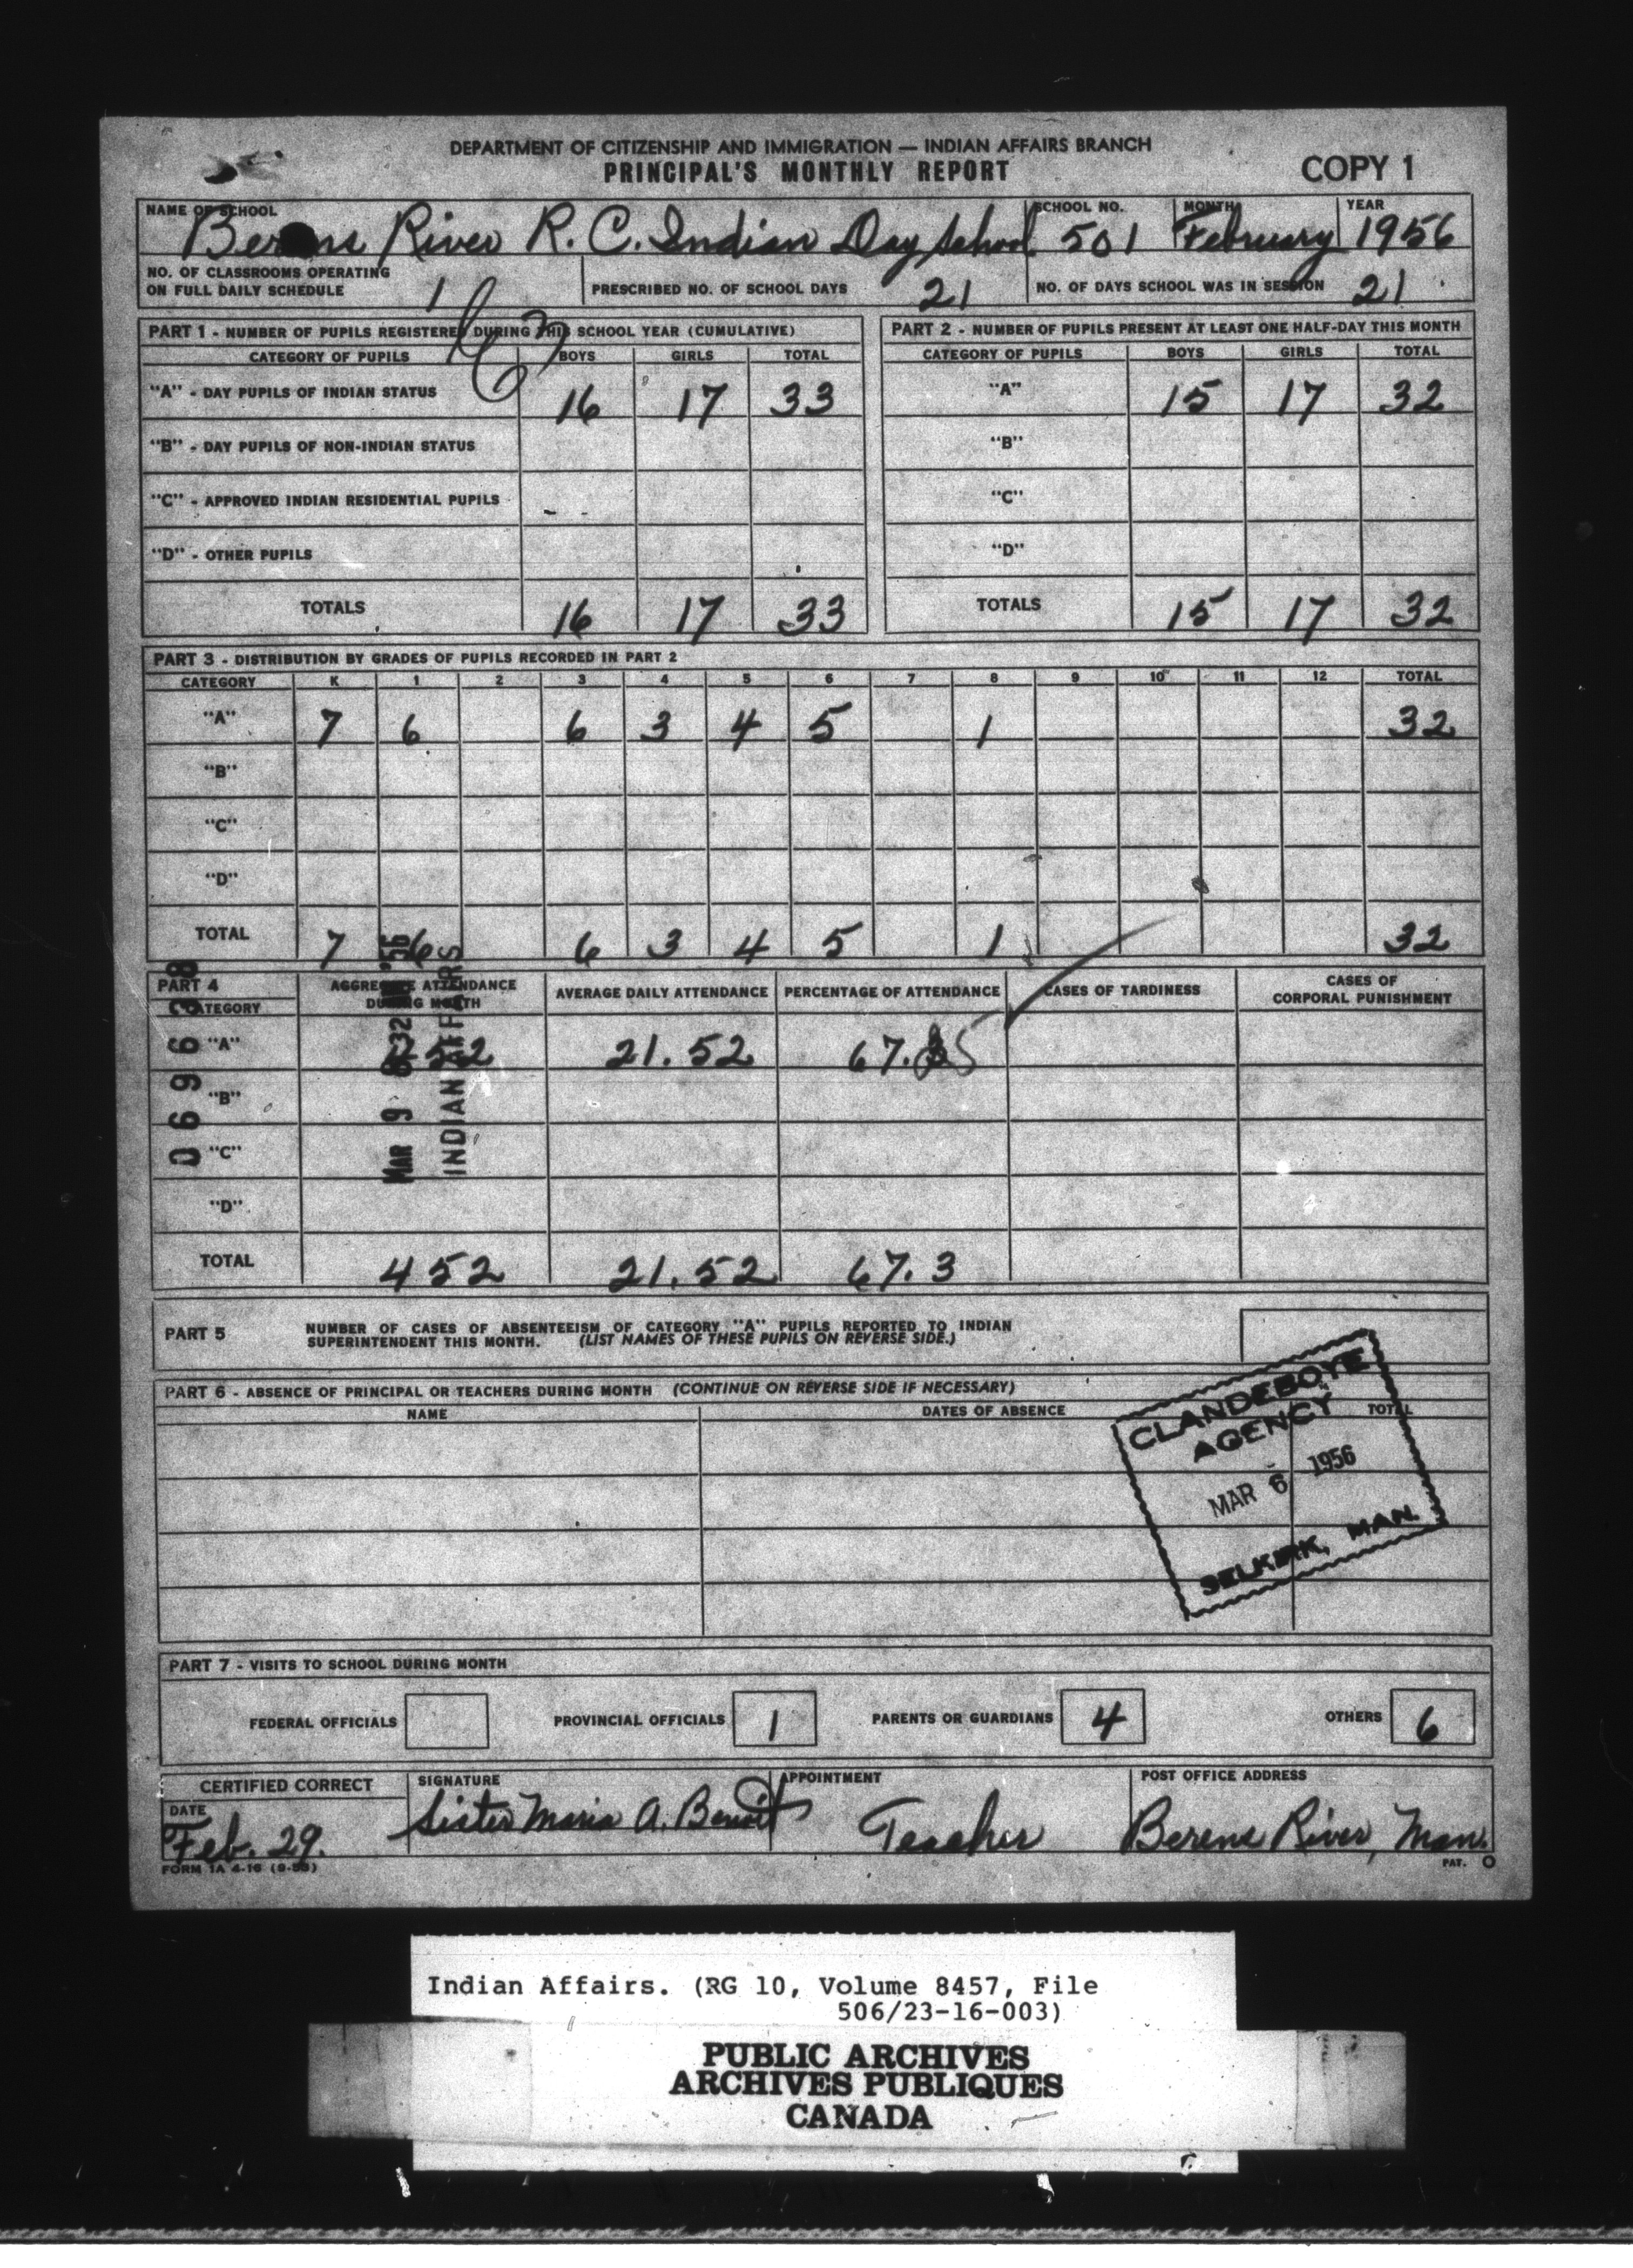 DEPARTMENT OF CITIZENSHIP AND IMMIGRATION — INDIAN AFFAIRS BRANCH
PRINCIPAL'S MONTHLY REPORT
COPY 1
NAME OF SCHOOL SCHOOL NO. MONTH YEAR
Berens River R. C. Indian Day School 501 February 1956
NO. OF CLASSROOMS OPERATING
ON FULL DAILY SCHEDULE 1 PRESCRIBED NO. OF SCHOOL DAYS 21 NO. OF DAYS SCHOOL WAS IN SESSION 21
PART 1 - NUMBER OF PUPILS REGISTERED DURING THIS SCHOOL YEAR (CUMULATIVE)
CATEGORY OF PUPILS BOYS GIRLS TOTAL
"A" - DAY PUPILS OF INDIAN STATUS 16 17 33
"B" - DAY PUPILS OF NON-INDIAN STATUS
"C" - APPROVED INDIAN RESIDENTIAL PUPILS
"D" - OTHER PUPILS
TOTALS 16 17 33
PART 2 - NUMBER OF PUPILS PRESENT AT LEAST ONE HALF-DAY THIS MONTH
CATEGORY OF PUPILS BOYS GIRLS TOTAL
"A" 15 17 32
"B"
"C"
"D"
TOTALS 15 17 32
PART 3 - DISTRIBUTION BY GRADES OF PUPILS RECORDED IN PART 2
CATEGORY K 1 2 3 4 5 6 7 8 9 10 11 12 TOTAL
"A" 7 6 6 3 4 5 1 32
"B"
"C"
"D"
TOTAL 7 6 6 3 4 5 1 32
PART 4
CATEGORY
AGGREGATE ATTENDANCE
DURING MONTH
AVERAGE DAILY ATTENDANCE PERCENTAGE OF ATTENDANCE CASES OF TARDINESS
CASES OF
CORPORAL PUNISHMENT
"A" 452 21.52 67.25
"B"
"C"
"D"
TOTAL 452 21.52 67.3
MAR 9 8 32 '56
INDIAN AFFAIRS
PART 5 NUMBER OF CASES OF ABSENTEEISM OF CATEGORY "A" PUPILS REPORTED TO INDIAN
SUPERINTENDENT THIS MONTH. (LIST NAMES OF THESE PUPILS ON REVERSE SIDE.)
PART 6 - ABSENCE OF PRINCIPAL OR TEACHERS DURING MONTH (CONTINUE ON REVERSE SIDE IF NECESSARY)
NAME DATES OF ABSENCE TOTAL
CLANDEBOYE
AGENCY
MAR 6 1956
SELKIRK, MAN.
PART 7 - VISITS TO SCHOOL DURING MONTH
FEDERAL OFFICIALS PROVINCIAL OFFICIALS 1 PARENTS OR GUARDIANS 4 OTHERS 6
CERTIFIED CORRECT SIGNATURE APPOINTMENT POST OFFICE ADDRESS
DATE
Feb. 29. Sister Maria A. Benoit Teacher Berens River, Man.
FORM 1A 4-16 (9-55) PAT. O
Indian Affairs. (RG 10, Volume 8457, File
506/23-16-003)
PUBLIC ARCHIVES
ARCHIVES PUBLIQUES
CANADA